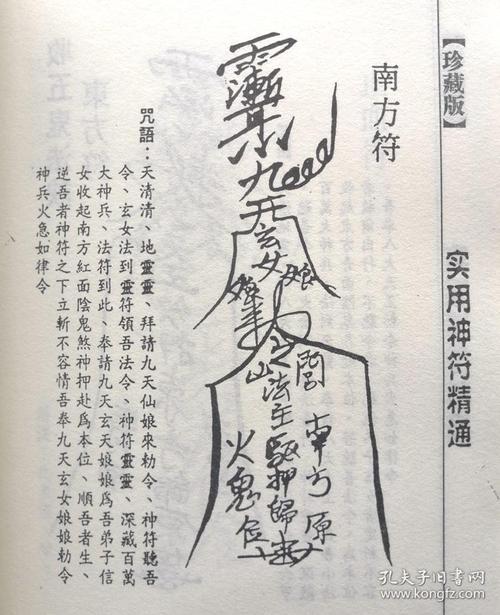 【珍藏版】
实用神符精通
南方符
九天玄女娘娘
山法主驅押歸
南方原
火鬼位
咒語：天清清、地靈靈、拜請九天仙娘來勅令、神符聽吾
令、玄女法到靈符領吾法令、神符靈靈、深藏百萬
大神兵、法符到此、奉請九天玄天娘娘爲吾弟子信
女收起南方紅面陰鬼煞神押赴爲本位、順吾者生、
逆吾者神符之下立斬不容情吾奉九天玄女娘娘勅令
神兵火急如律令
孔夫子旧书网
www.kongfz.com